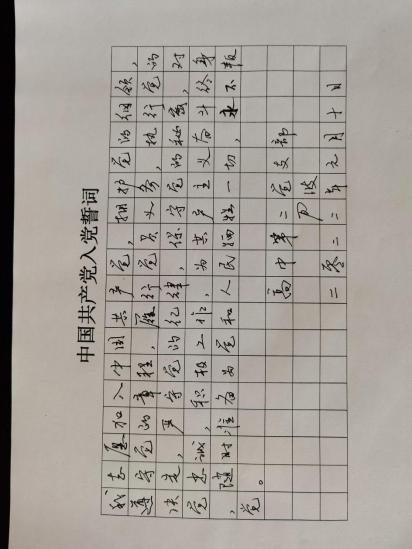 中国共产党入党誓词
我志愿加入中国共产党，拥护党的纲领，
遵守党的章程，履行党员义务，执行党的
决定，严守党的纪律，保守党的秘密，对
党忠诚，积极工作，为共产主义奋斗终身
，随时准备为党和人民牺牲一切，永不叛
党。
高中第二党支部
波
二零二二年元月十日